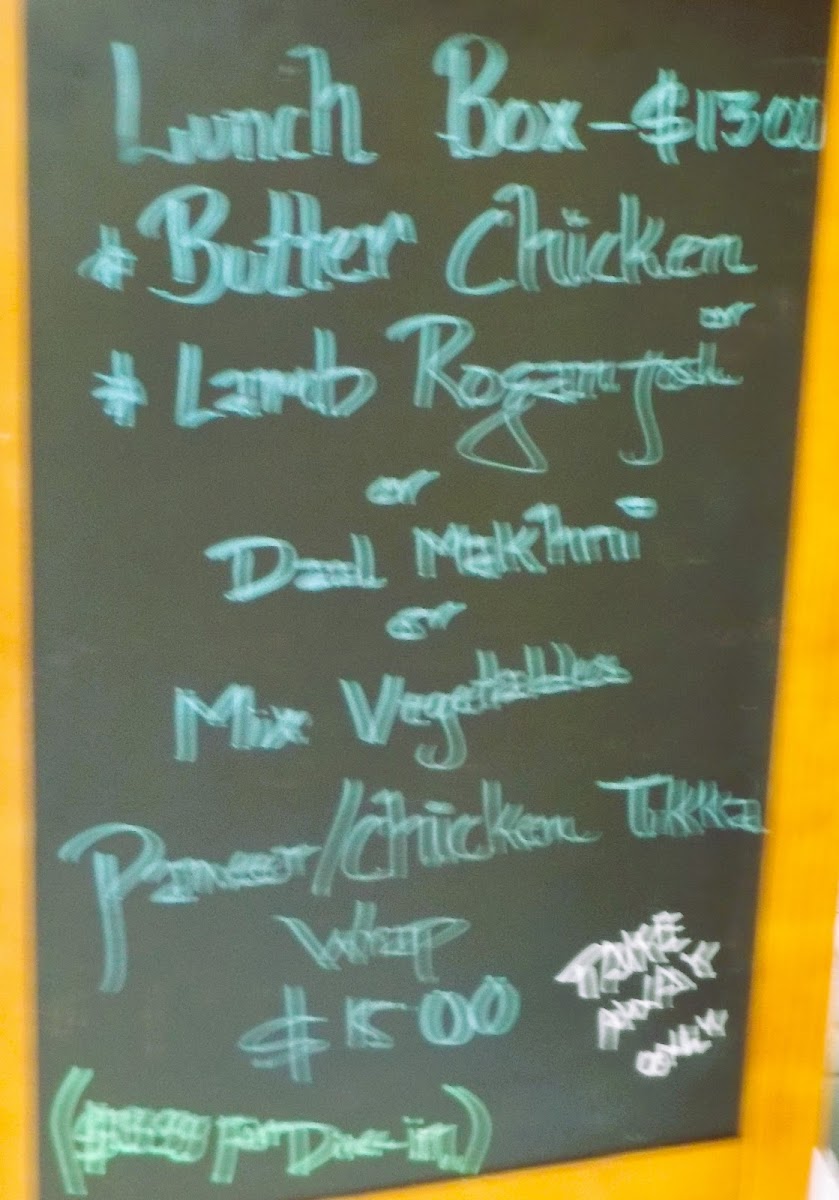 Lunch Box - $13 00
* Butter Chicken
or
* Lamb Rogan josh
or
Daal Makhni
or
Mix Vegetables
Paneer/chicken Tikka
Wrap
$15.00
TAKE
AWAY
ONLY
for Dine-in)